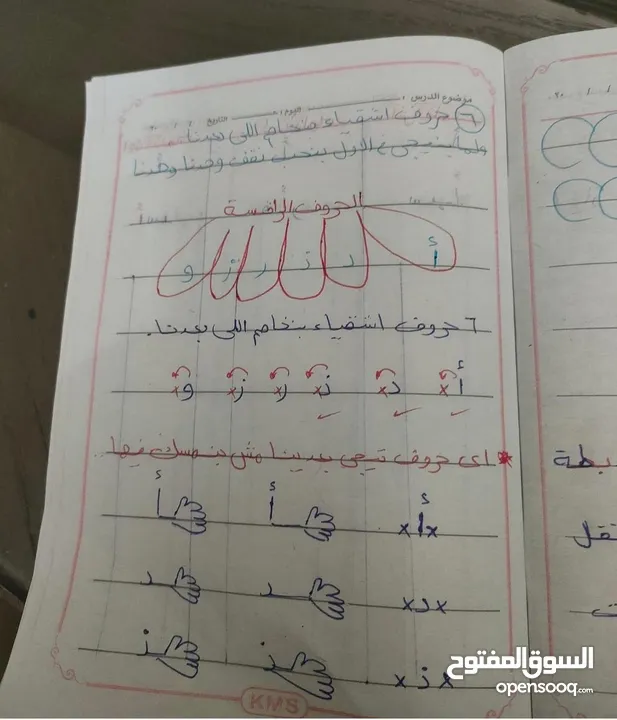 موضوع الدرس : اليوم : التاريخ / / ٢٠
٦ حروف اشقياء بنخاصم اللى بعدنا
ولما بنيجى فى الاول بنحب نقف وحدنا وحدنا
الحروف الرافسة
أ د ذ ر ز و
٦ حروف اشقياء بنخاصم اللى بعدنا.
أ د ذ ر ز و
* اى حروف تيجى بعدينا مش بنمسك فيها
xأx أ أ
xدx د د
xذx ذ ذ
KMS
بطة
السوق المفتوح
opensooq.com